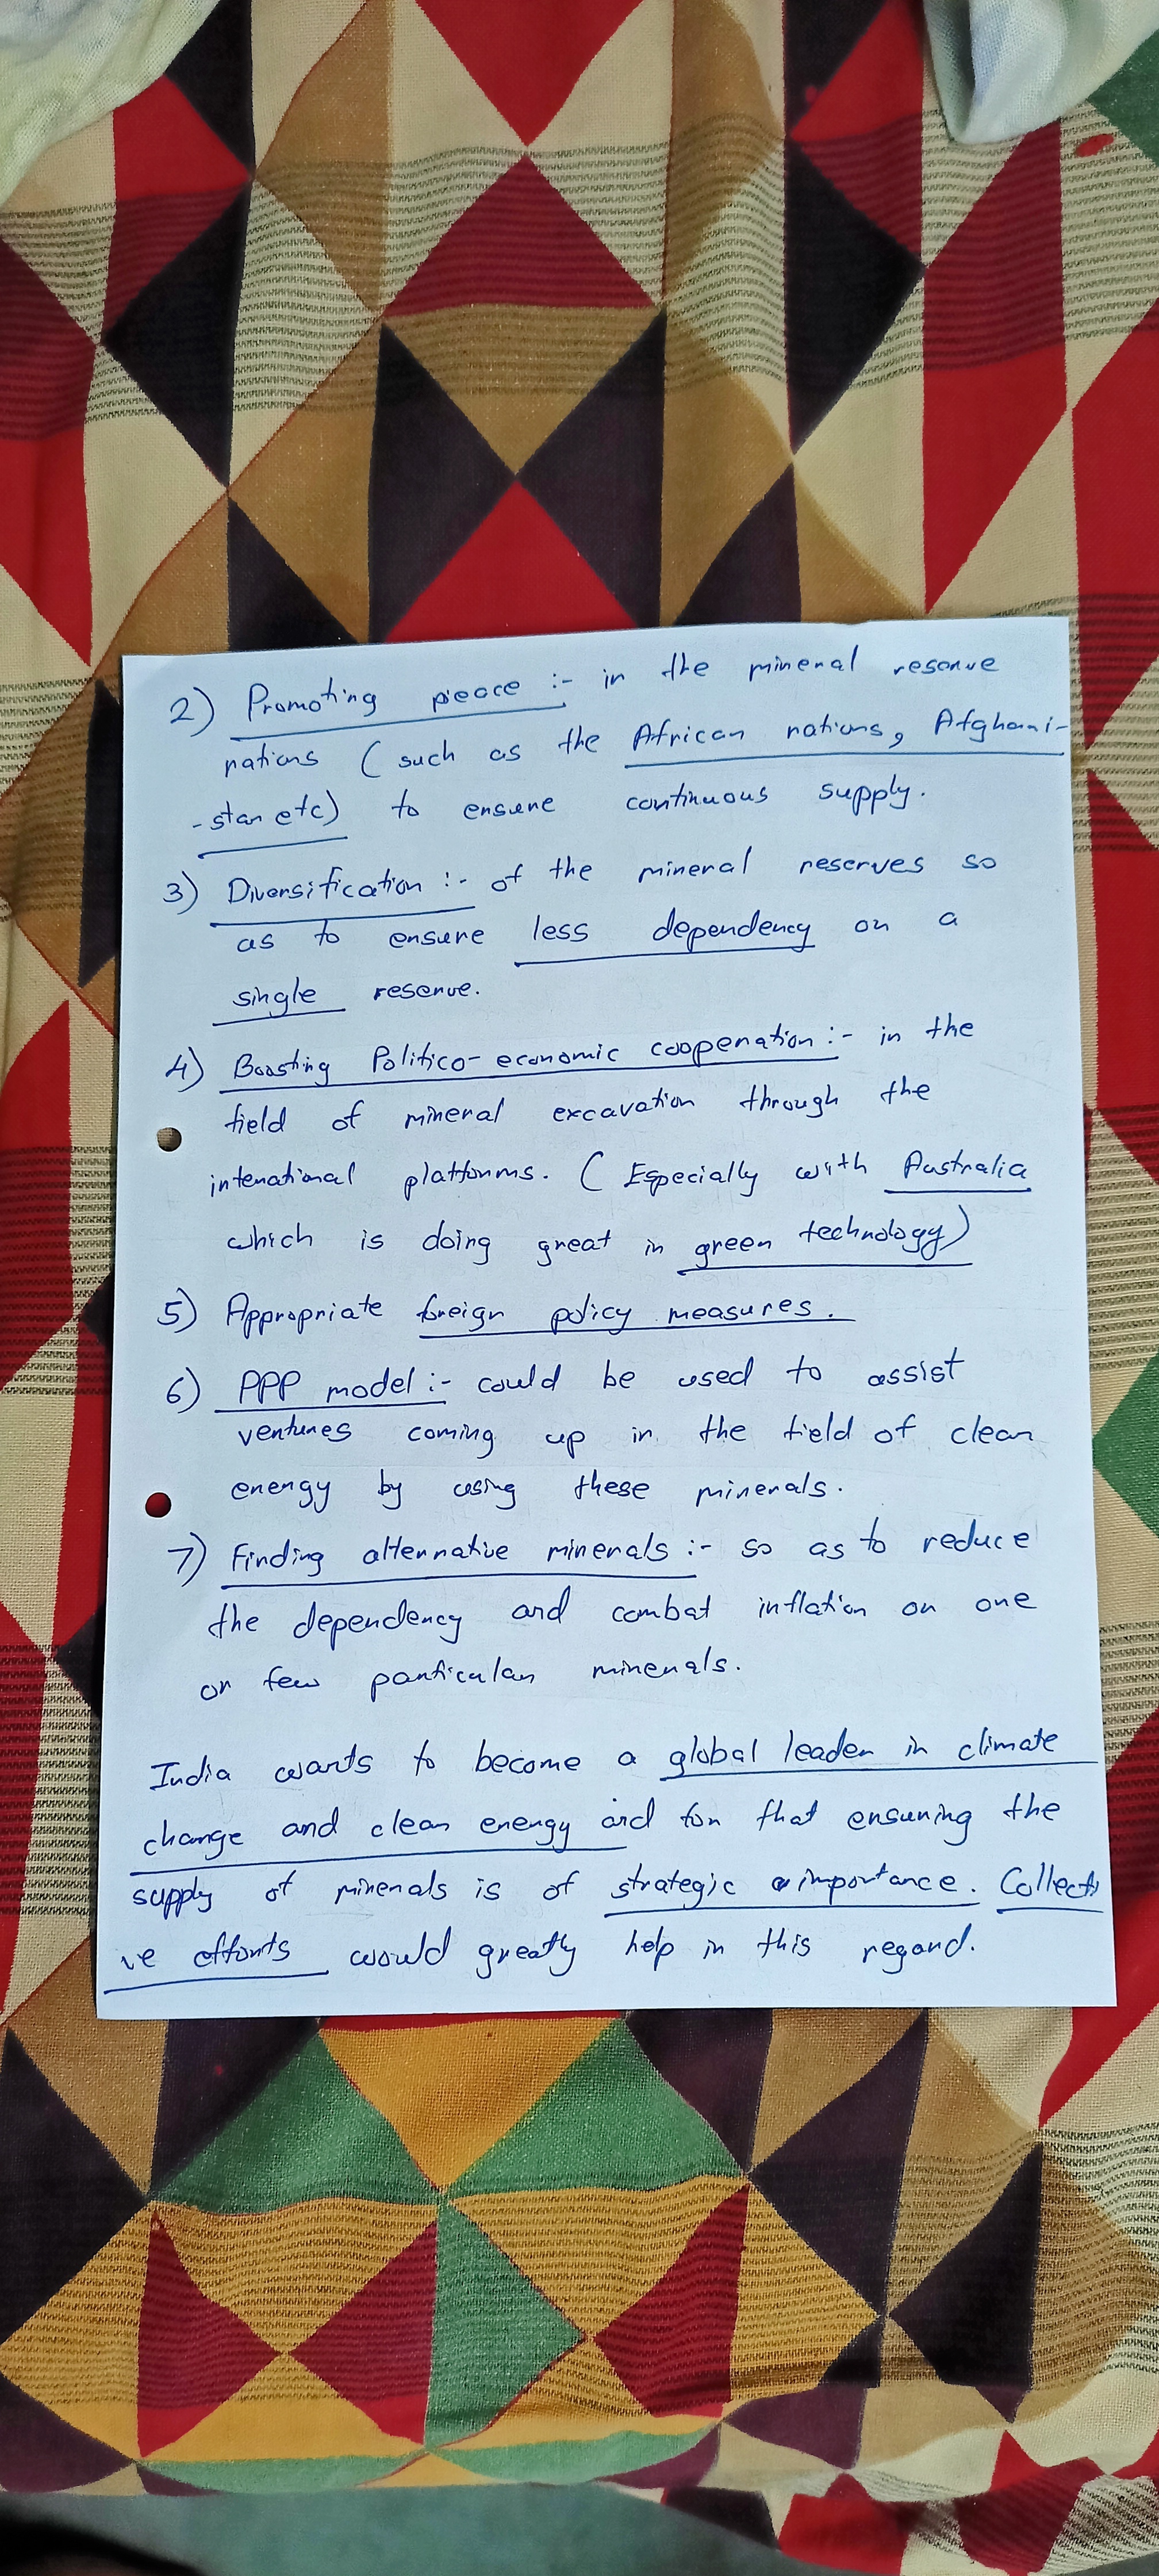 2) Promoting peace :- in the mineral reserve
nations (such as the African nations, Afghani-
-stan etc) to ensure continuous supply.
3) Diversification :- of the mineral reserves so
as to ensure less dependency on a
single reserve.
4) Boosting Politico-economic cooperation :- in the
field of mineral excavation through the
international platforms. (Especially with Australia
which is doing great in green technology)
5) Appropriate foreign policy measures.
6) PPP model :- could be used to assist
ventures coming up in the field of clean
energy by using these minerals.
7) Finding alternative minerals :- so as to reduce
the dependency and combat inflation on one
or few particular minerals.
India wants to become a global leader in climate
change and clean energy and for that ensuring the
supply of minerals is of strategic importance. Collecti
ve efforts would greatly help in this regard.